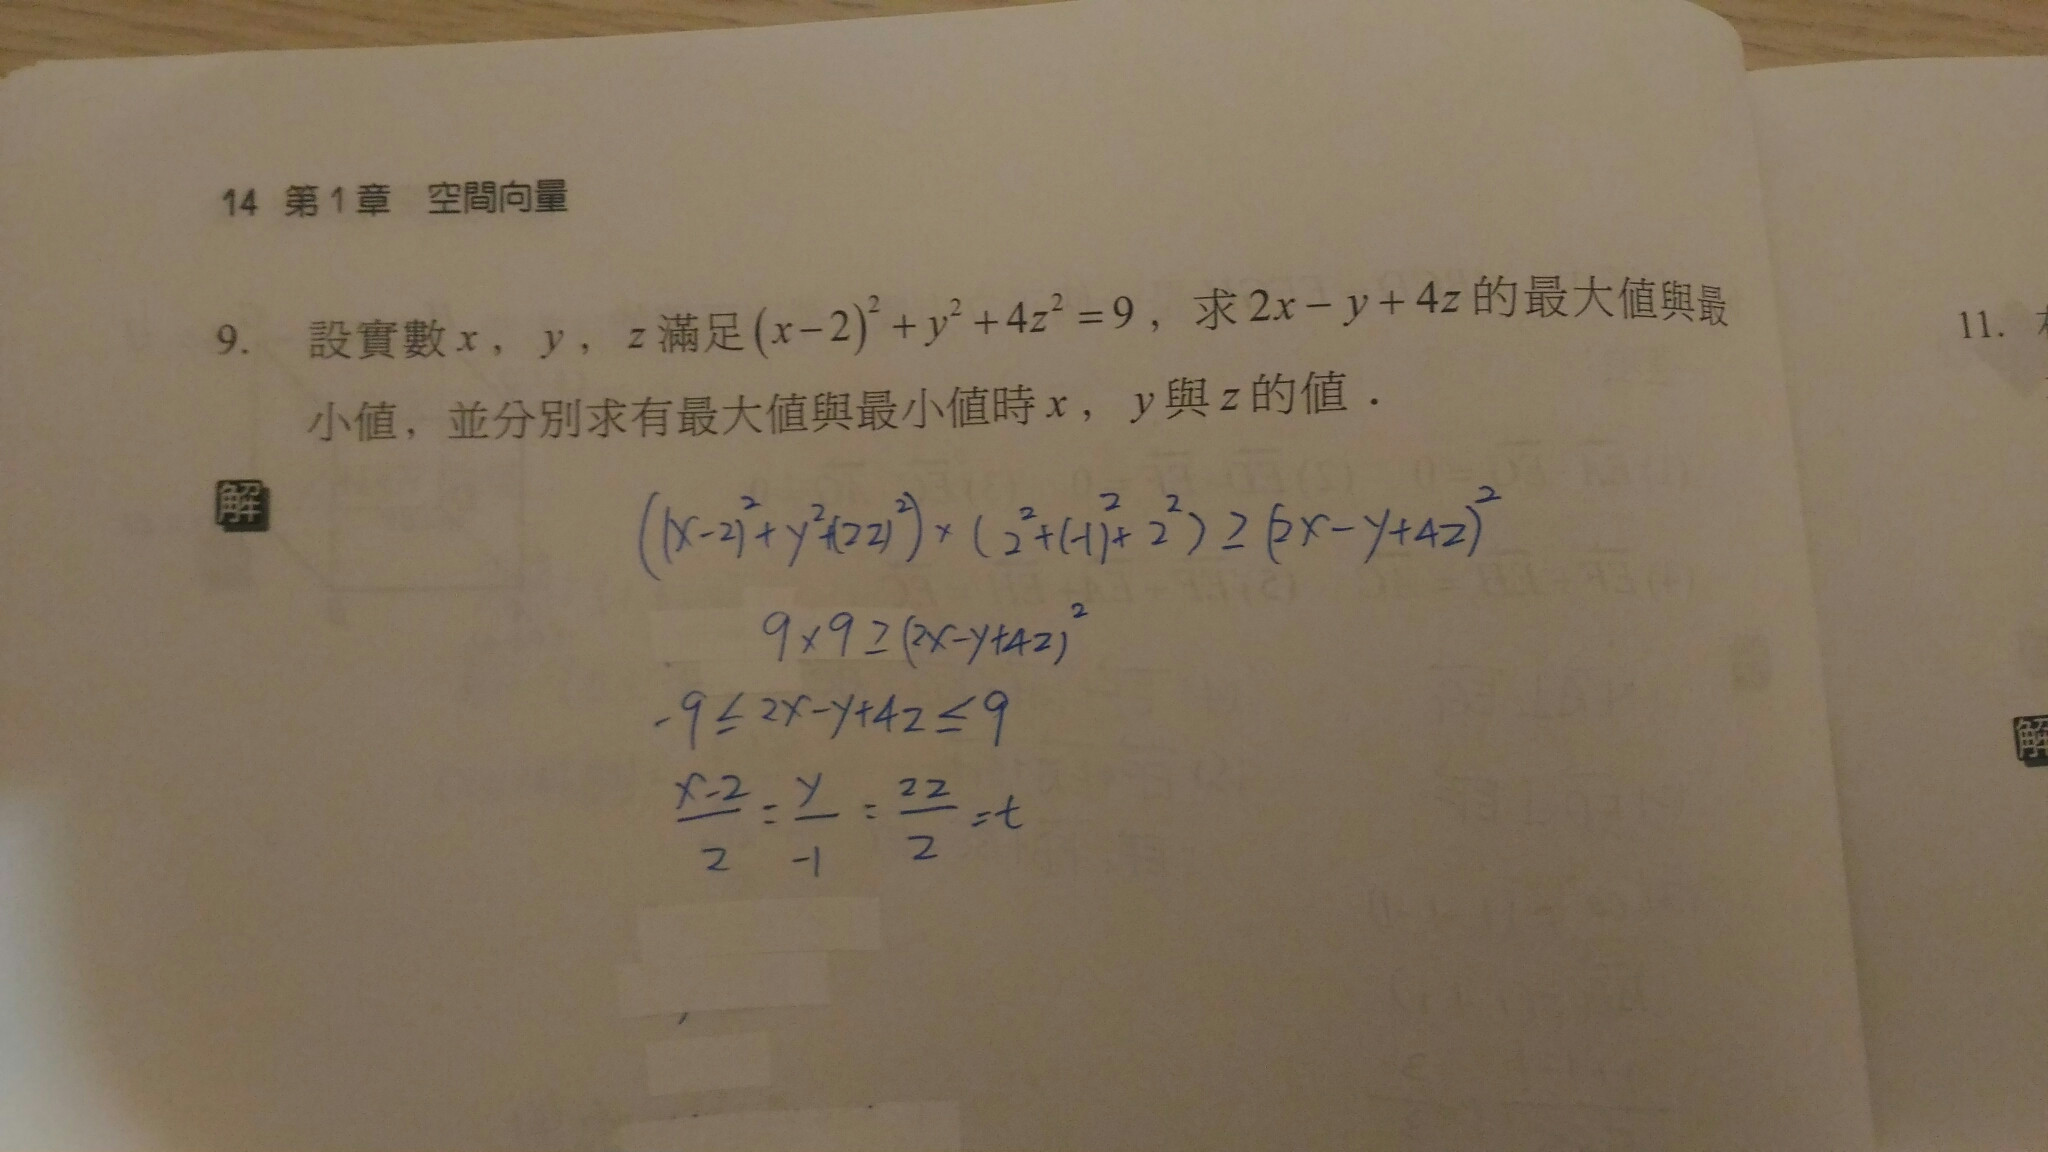 14 第1章 空間向量
9. 設實數 x, y, z 滿足 (x−2)² + y² + 4z² = 9, 求 2x − y + 4z 的最大值與最
小值, 並分別求有最大值與最小值時 x, y 與 z 的值.
解
((x-2)²+y²+(2z)²)×(2²+(-1)²+2²) ≥ (2x-y+4z)²
9×9 ≥ (2x-y+4z)²
-9 ≤ 2x-y+4z ≤ 9
(x-2)/2 = y/-1 = 2z/2 = t
11.
解